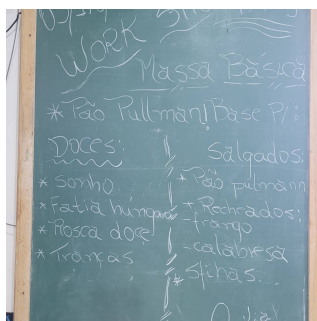 WORK
Massa Básica
* Pão Pullman! Base P/:
Doces:
* sonho.
* Fatia húngara
* Rosca doce
* Tranças
Salgados:
* Pão pulmann
* Recheados:
- frango
- calabresa
* Sfihas...